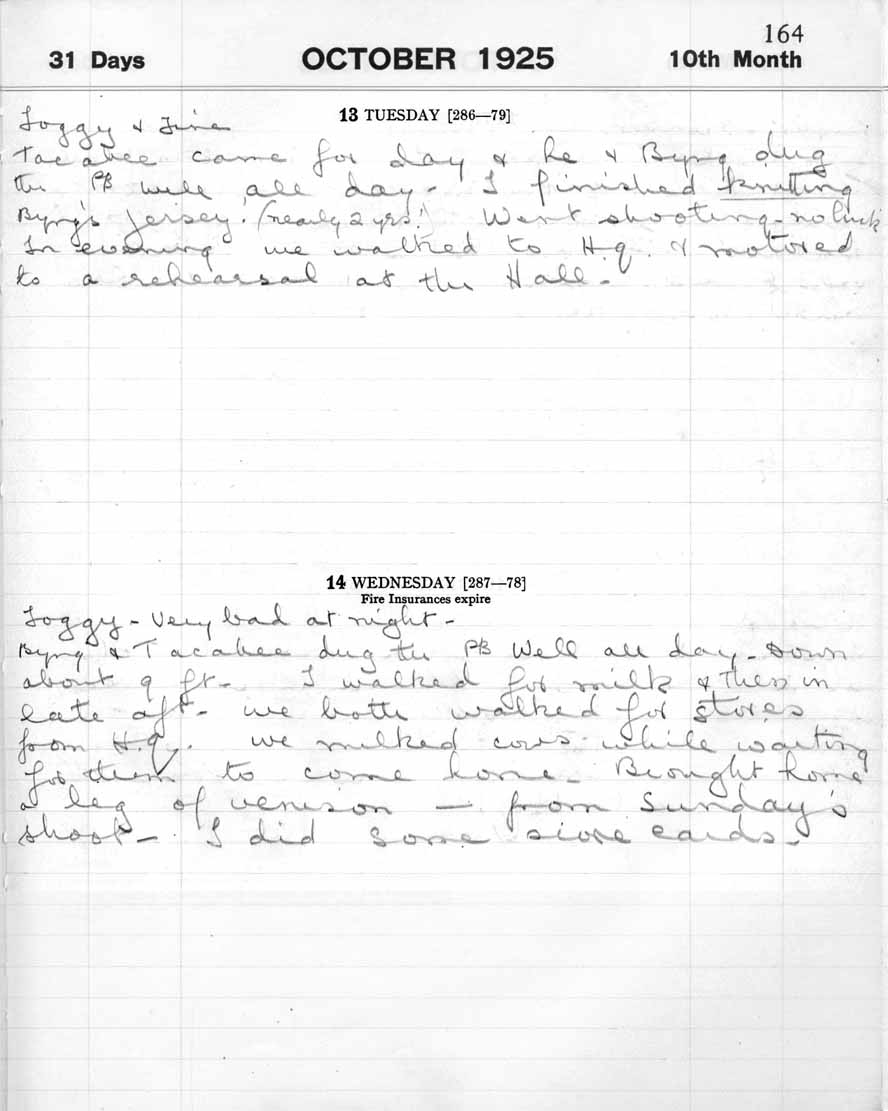 164
31 Days OCTOBER 1925 10th Month
13 TUESDAY [286—79]
Foggy & Fine
Tacabee came for day & he & Byng dug
the PB well all day - I finished knitting
Byng's Jersey. (nearly 2 yrs!) Went shooting - no luck
In evening we walked to H.q. & motored
to a rehearsal at the Hall -
14 WEDNESDAY [287—78]
Fire Insurances expire
Foggy - Very bad at night -
Byng & Tacabee dug the PB Well all day - Down
about 9 ft - I walked for milk & then in
late aft - we both walked for stores
from H.q. we milked cows while waiting
for them to come home - Brought home
a leg of venison — from Sunday's
shoot - I did some score cards -